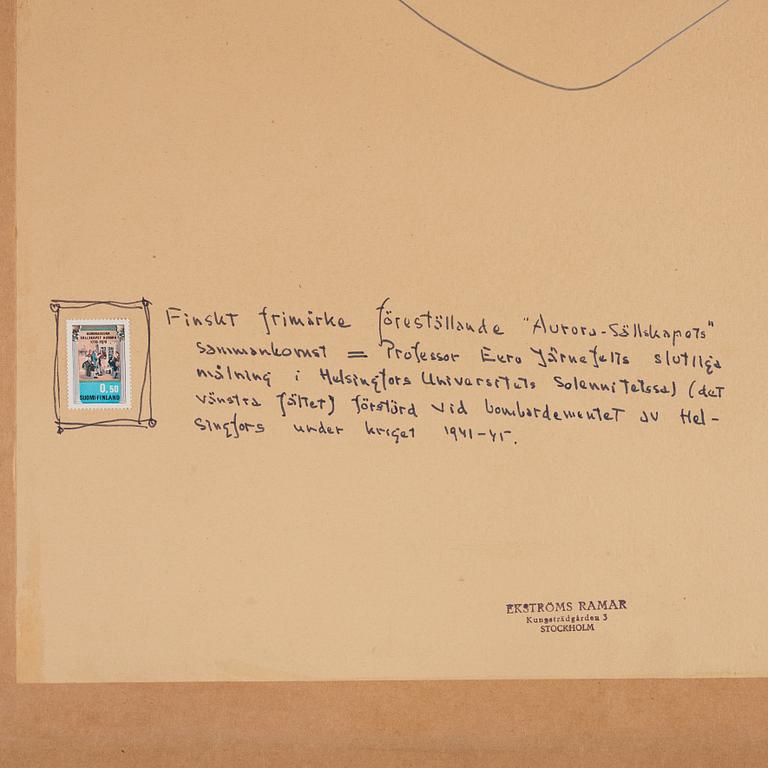 Finskt frimärke föreställande "Aurora-Sällskapets"
sammankomst = Professor Eero Järnefelts slutliga
målning i Helsingfors Universitets Solennitetssal (det
vänstra fältet) förstörd vid bombardementet av Hel-
singfors under kriget 1941-45.
0,50
SUOMI-FINLAND
EKSTRÖMS RAMAR
Kungsträdgården 3
STOCKHOLM